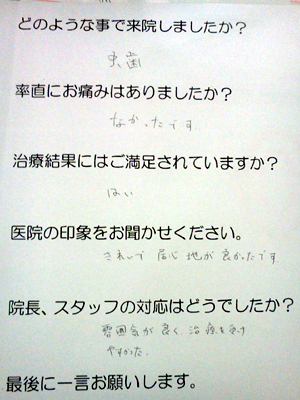 どのような事で来院しましたか？
虫歯
率直にお痛みはありましたか？
なかったです
治療結果にはご満足されていますか？
はい
医院の印象をお聞かせください。
きれいで 居心地が良かったです。
院長、スタッフの対応はどうでしたか？
雰囲気が良く、治療を受け
やすかった。
最後に一言お願いします。